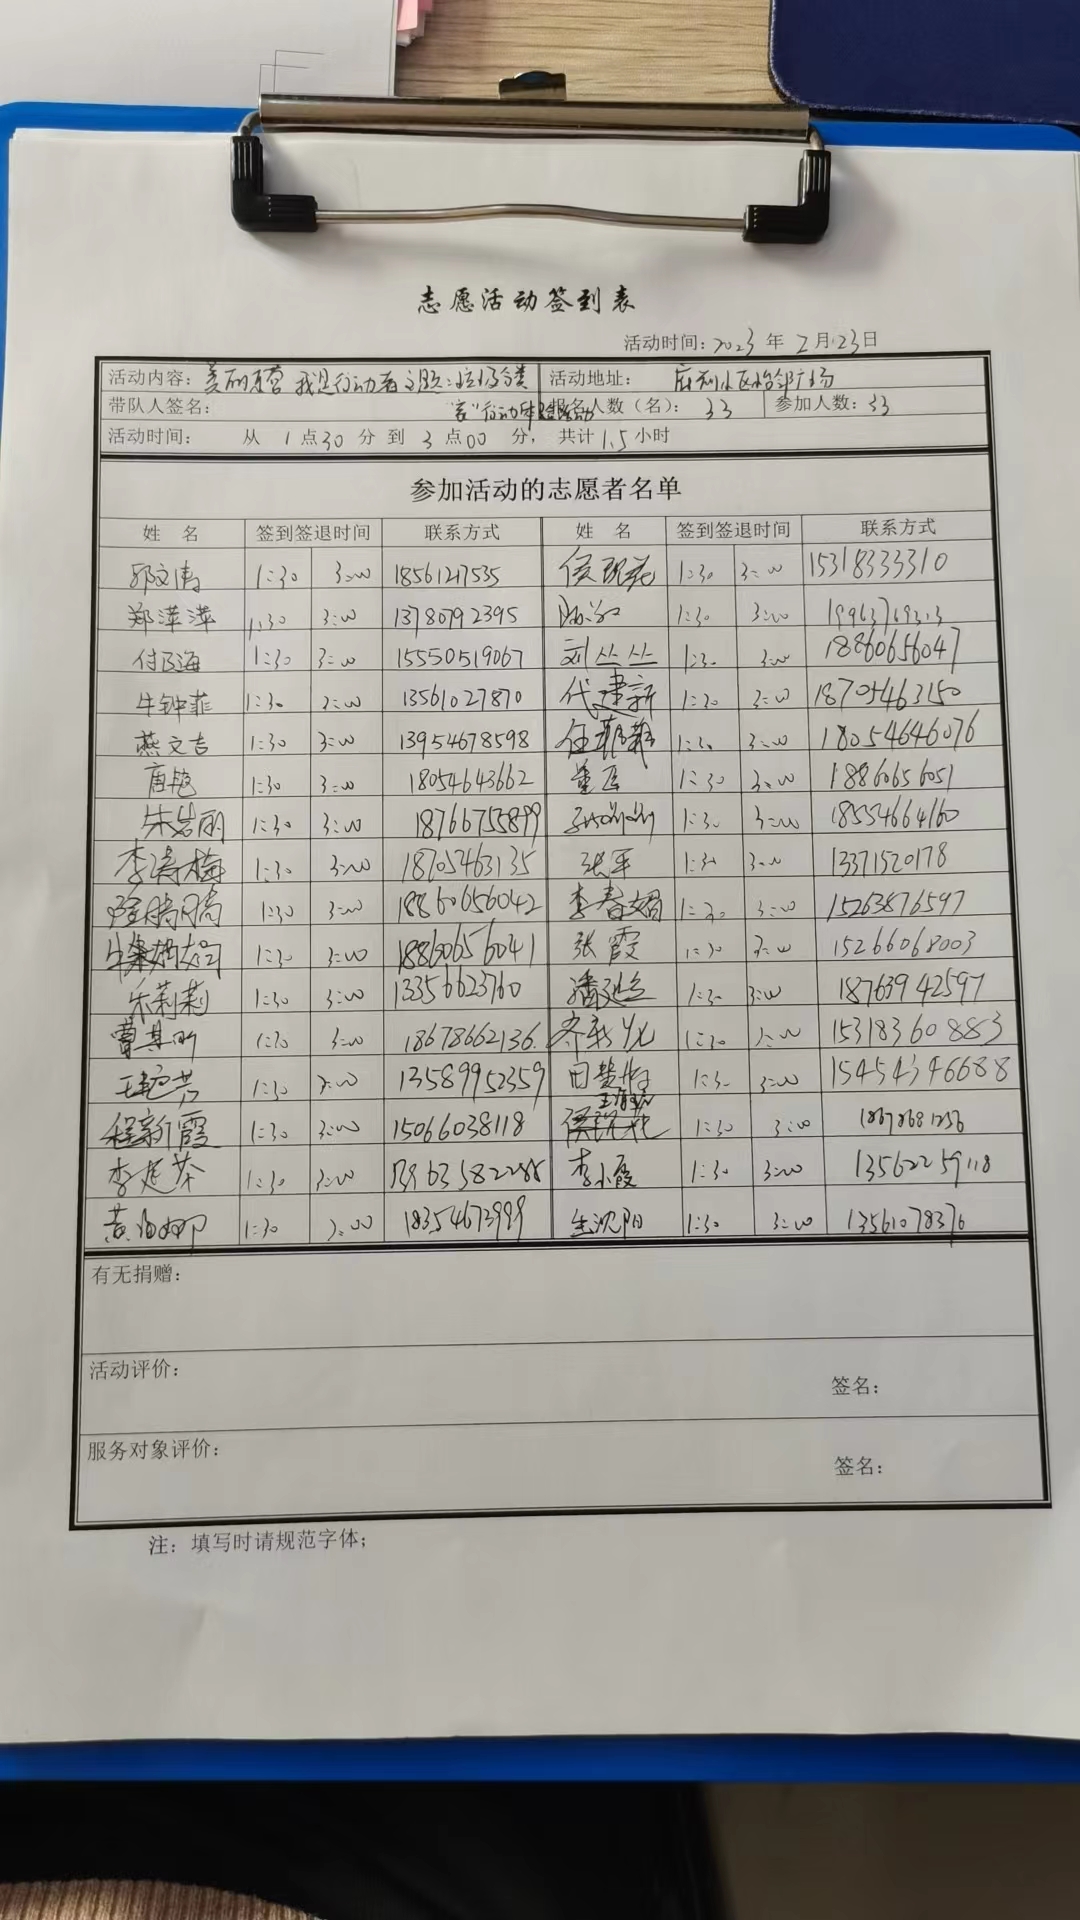 志愿活动签到表
活动时间：2023 年 2 月 23 日
活动内容：美丽东营 我是行动者 主题：垃圾分类 活动地址： 小区 广场
带队人签名： 行动 活动 报名人数（名）： 33 参加人数：33
活动时间： 从 1 点 30 分 到 3 点 00 分， 共计 1.5 小时
参加活动的志愿者名单
姓 名 签到签退时间 联系方式 姓 名 签到签退时间 联系方式
1:30 3:00 18561217535 1:30 3:00 15318333310
郑萍萍 1:30 3:00 13780792395 1:30 3:00
1:30 3:00 15550519067 刘丛丛 1:30 3:00 18860656047
牛钟菲 1:30 3:00 13561027870 代建新 1:30 3:00 18705463150
燕文吉 1:30 3:00 13954678598 任菲菲 1:30 3:00 18054646076
唐艳 1:30 3:00 18054643662 1:30 3:00 18860656051
朱岩丽 1:30 3:00 18766755899 1:30 3:00 18554664160
李海梅 1:30 3:00 18705463135 张平 1:30 3:00 13371520178
1:30 3:00 18860656042 李春娟 1:30 3:00 15263876597
1:30 3:00 18860656041 张霞 1:30 3:00 15266068003
乐莉莉 1:30 3:00 13356623760 1:30 3:00 18763942597
1:30 3:00 18678662136. 1:30 3:00 15318360883
王艳芳 1:30 3:00 13589952359 1:30 3:00 15454346688
程新霞 1:30 3:00 15066038118 1:30 3:00 18678681256
李延芬 1:30 3:00 李小霞 1:30 3:00 13562259118
1:30 3:00 18354673999 1:30 3:00 13561078376
有无捐赠：
活动评价：
签名：
服务对象评价：
签名：
注：填写时请规范字体；